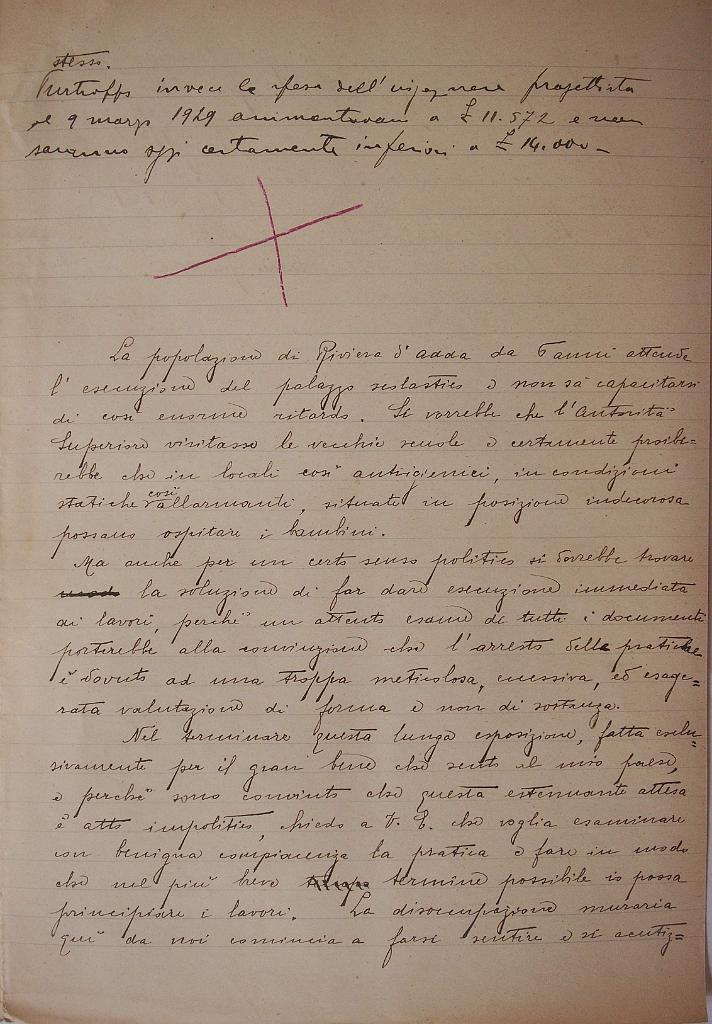 stesso.
Purtroppo invece le spese dell'ingegnere progettista
al 9 marzo 1929 ammontavano a £ 11.572 e non
saranno oggi certamente inferiori a £ 14.000 -
La popolazione di Riviera d'Adda da 5 anni attende
l'esecuzione del palazzo scolastico e non sa capacitarsi
di così enorme ritardo. Si vorrebbe che l'Autorità
Superiore visitasse le vecchie scuole e certamente proibe=
rebbe che in locali così antigienici, in condizioni
statiche così allarmanti, situate in posizione indecorosa
possano ospitare i bambini.
Ma anche per un certo senso politico si dovrebbe trovare
la soluzione di far dare esecuzione immediata
ai lavori, perchè un attento esame di tutti i documenti
porterebbe alla convinzione che l'arresto delle pratiche
è dovuto ad una troppa meticolosa, eccessiva, ed esage=
rata valutazione di forma e non di sostanza.
Nel terminare questa lunga esposizione, fatta esclu=
sivamente per il gran bene che sento al mio paese,
e perchè sono convinto che questa estenuante attesa
è atto impolitico, chiedo a V. E. che voglia esaminare
con benigna compiacenza la pratica e fare in modo
che nel più breve termine possibile io possa
principiare i lavori. La disoccupazione muraria
quì da noi comincia a farsi sentire e si acutiz=